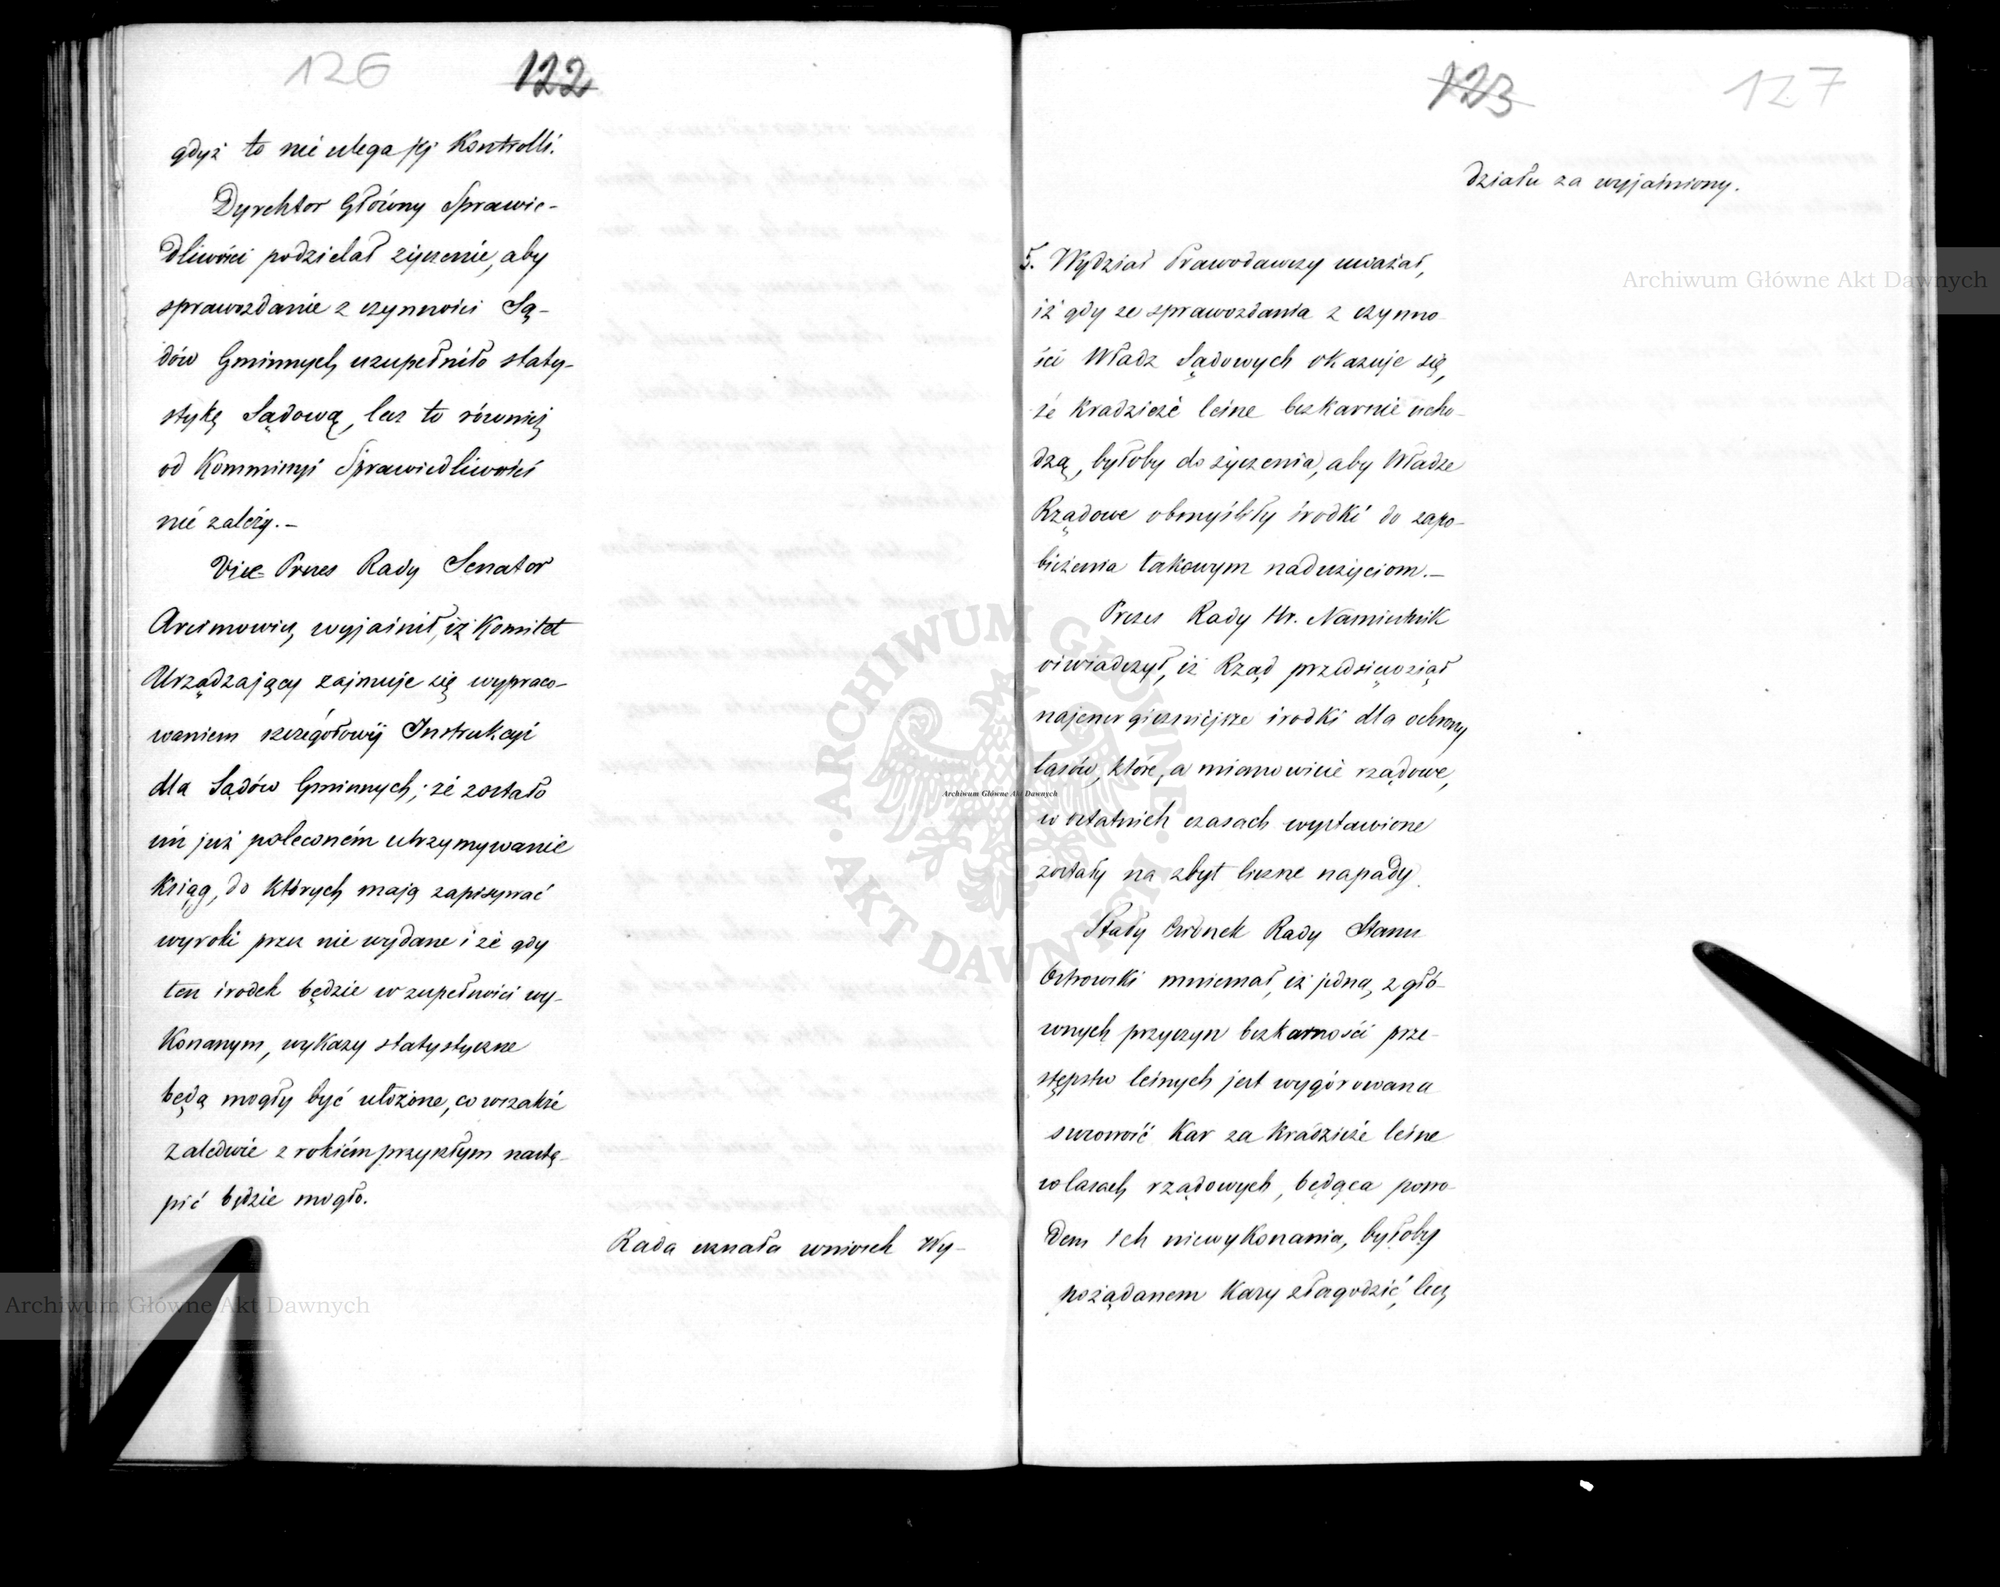 126
122
gdyż to nie ulega jej Kontrolli.
Dyrektor Główny Sprawie-
dliwości podzielał życzenie, aby
sprawozdanie z czynności Są-
dów Gminnych uzupełniło staty-
stykę Sądową, lecz to również
od Kommissyi Sprawiedliwości
nie zależy.—
Vice-Prezes Rady Senator
Arcimowicz, wyjaśnił, iż Komitet
Urządzający zajmuje się wypraco-
waniem szczegółowéj Instrukcyi
dla Sądów Gminnych; że zostało
im już poleconém utrzymywanie
Ksiąg, do których mają zapisywać
wyroki przez nie wydane i że gdy
ten środek będzie w zupełności wy-
Konanym, wykazy statystyczne
będą mogły być ułożone, co wszakże
zaledwie z rokiém przyszłym nastą-
pić będzie mogło.
Rada uznała wniosek Wy-
123
127
działu za wyjaśniony.
5. Wydział Prawodawczy uważał,
iż gdy ze sprawozdania z czynno-
ści Władz Sądowych okazuje się,
że Kradzieże leśne bezkarnie ucho-
dzą, byłoby do życzenia, aby Władze
Rządowe obmyśliły środki do zapo-
bieżenia takowym nadużyciom.—
Prezes Rady Hr. Namiestnik
oświadczył, iż Rząd przedsięwziął
najenergiczniejsze środki dla ochrony
lasów, które, a mianowicie rządowe,
w ostatnich czasach wystawione
zostały na zbyt liczne napady.
Stały Członek Rady Stanu
Ostrowski mniemał, iż jedną z głó-
wnych przyczyn bezkarności prze-
stępstw leśnych jest wygórowana
surowość Kar za Kradzieże leśne
w lasach rządowych, będąca powo-
dem ich niewykonania, byłoby
pożądanem Kary złagodzić, lecz
Archiwum Główne Akt Dawnych
Archiwum Główne Akt Dawnych
Archiwum Główne Akt Dawnych
ARCHIWUM GŁÓWNE · AKT DAWNYCH ·